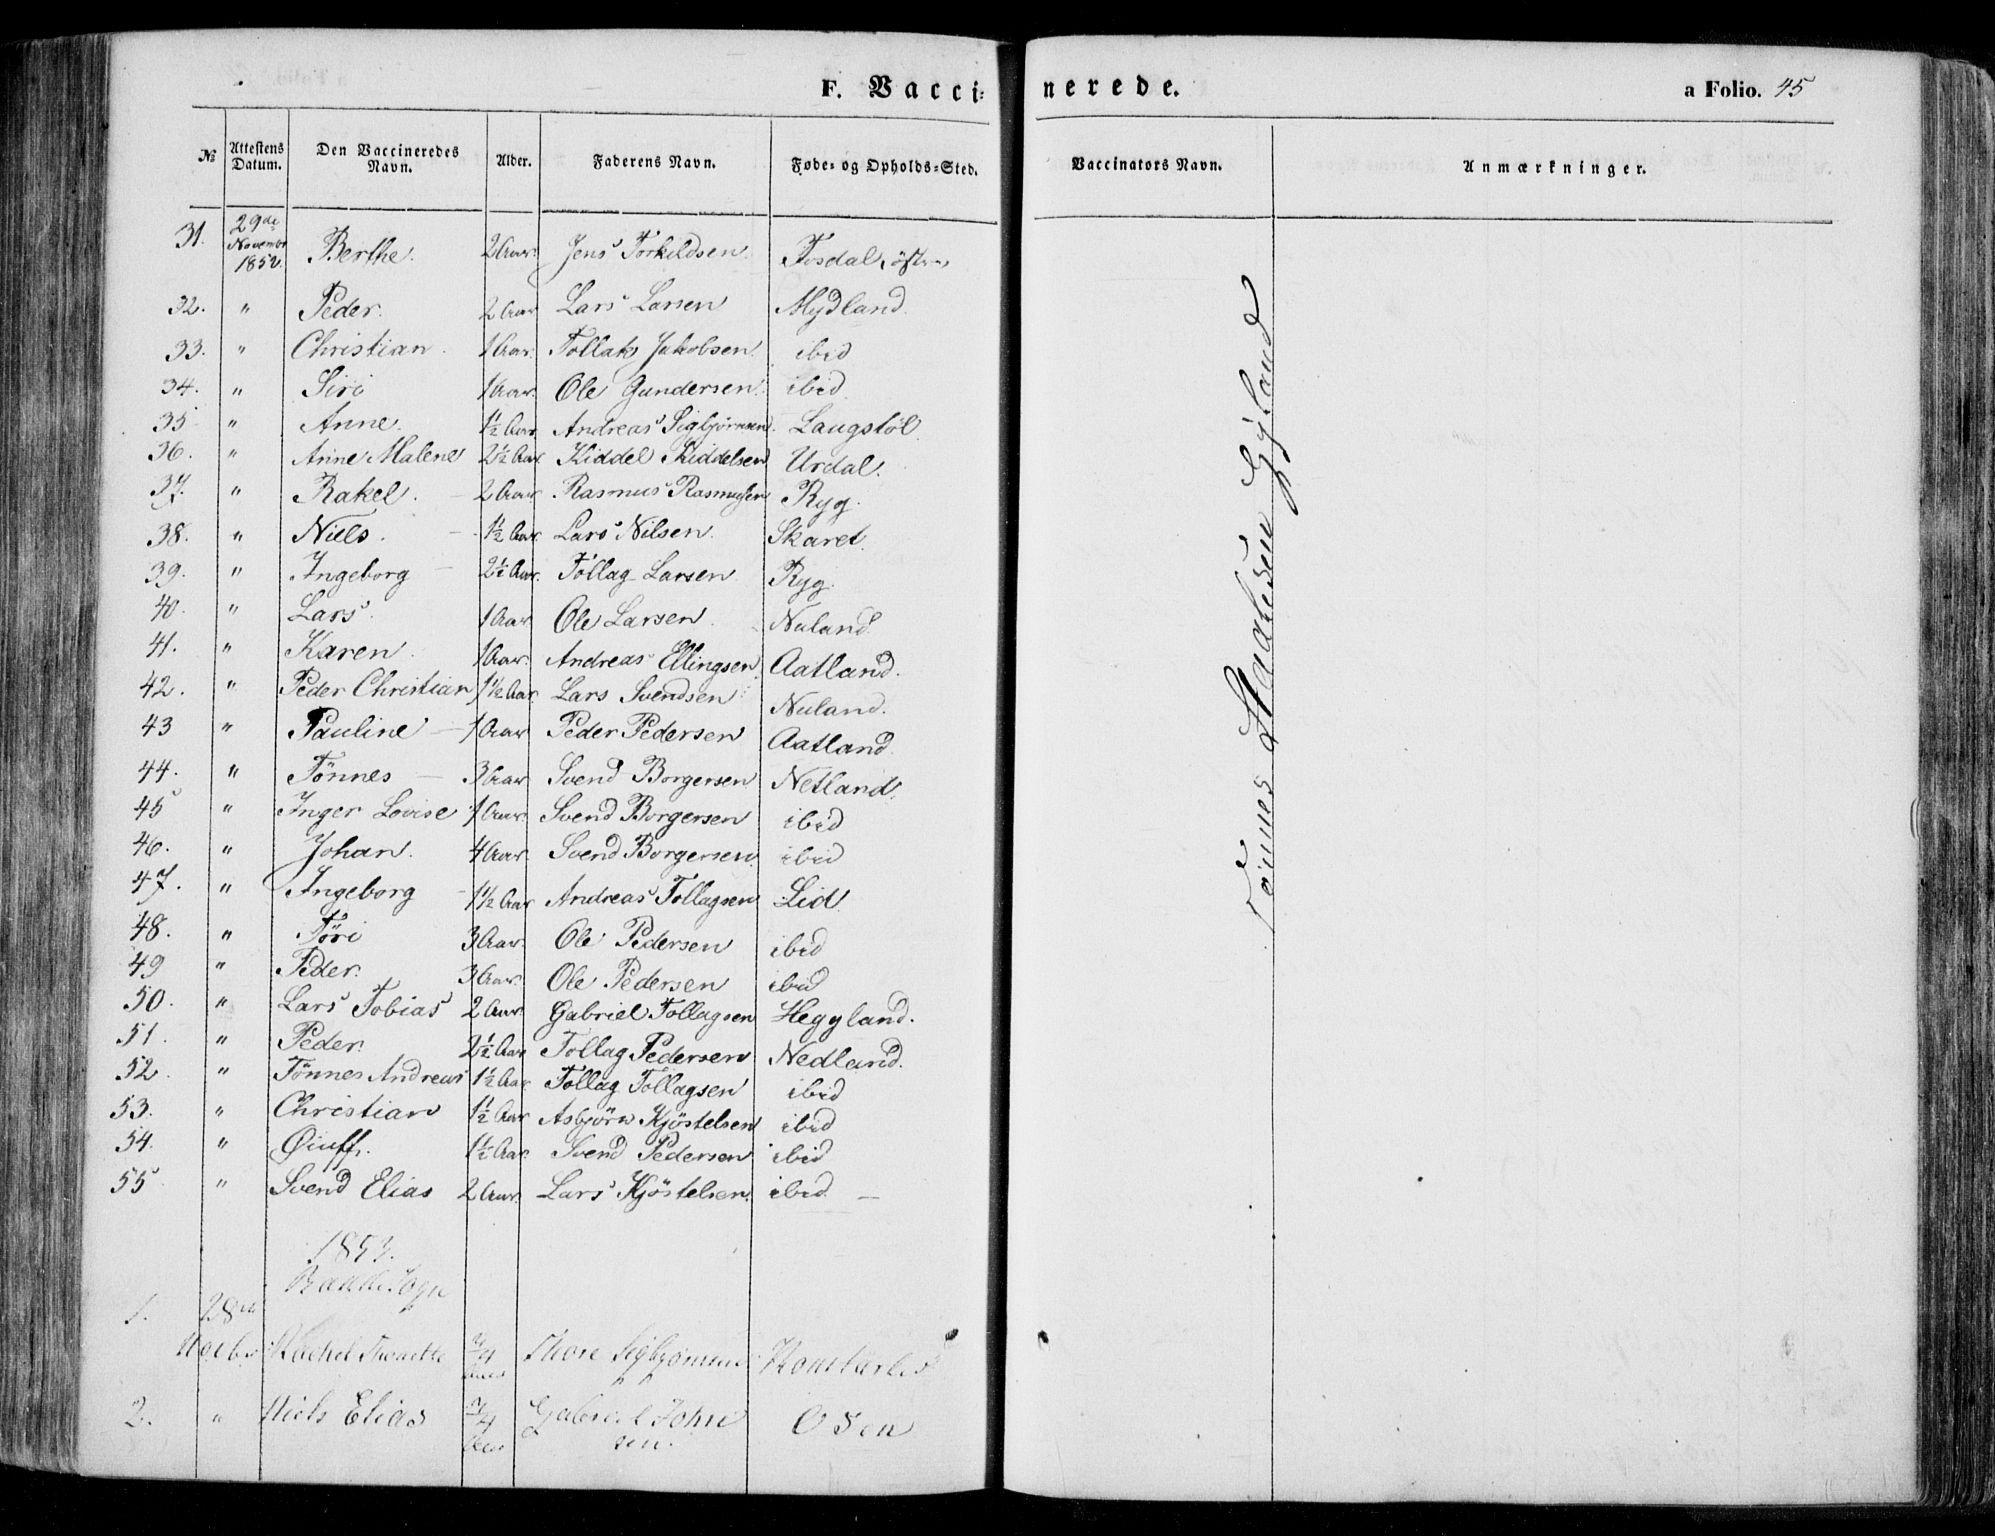 F. Vacci=
nerede.
a Folio. 45
No Attestens Datum. Den Vaccineredes Navn. Alder. Faderens Navn. Føde= og Opholds=Sted. Vaccinators Navn. Anmærkninger.
31. 29de Novembr 1852. Berthe. 2 Aar. Jens Torkildsen. Fosdal,
32. " Peder. 2 Aar Lars Larsen Mydland.
33. " Christian. 1 Aar. Tollak Jakobsen. ibid
34. " Siri 1 Aar. Ole Gundersen. ibid.
35 " Anne. 1½ Aar. Andreas Sigbjørnsen. Laugstøl.
36. " Anne Malene 2½ Aar. Kiddel Kiddelsen Urdal.
37. " Rakel. 2 Aar Rasmus Rasmussen Ryg.
38. " Niels. 1½ Aar. Lars Nilsen. Skaret.
39. " Ingeborg 2½ Aar. Tollag Larsen Ryg.
40. " Lars. 1 Aar. Ole Larsen. Nuland.
41. " Karen. 1 Aar. Andreas Ellingsen. Aatland.
42. " Peder Christian 1½ Aar. Lars Svendsen Nuland.
43 " Pauline 1 Aar Peder Pedersen Aatland.
44. " Tönnes 3 Aar Svend Borgersen Netland.
45 " Inger Lovise 1 Aar. Svend Borgersen ibid
46. " Johan. 4 Aar. Svend Borgersen. ibid
47. " Ingeborg 1½ Aar Andreas Tollagsen Lid.
48. " Töri 3 Aar. Ole Pedersen ibid
49 " Peder. 3 Aar. Ole Pedersen ibid
50. " Lars Tobias 2 Aar. Gabriel Tollagsen Heggland.
51. " Peder. 2½ Aar Tollag Pedersen Nedland.
52. " Tönnes Andreas 1½ Aar. Tollag Tollagsen ibid
53. " Christian 1½ Aar Asbjörn Kjöstelsen ibid
54. " 1½ Aar. Svend Pedersen ibid
55 " Svend Elias 2 Aar. Lars Kjöstelsen. ibid. —
1853.
Bakke Sogn
1. 28de
Rachel 3/4 Thore Sigbjørnsen
2. " Niels Elias 3/4 Gabriel John
sen. Osen
Tönnes Gyland